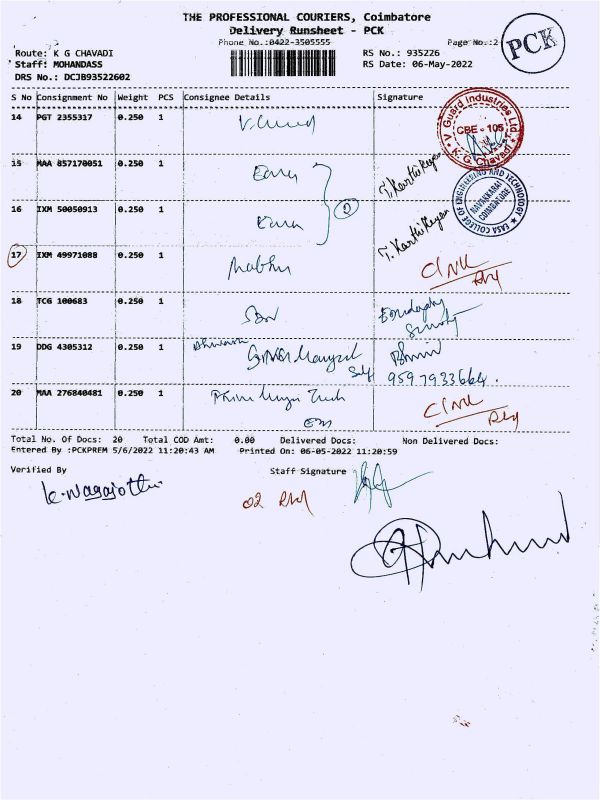 THE PROFESSIONAL COURIERS, Coimbatore
Delivery Runsheet - PCK
Phone No.:0422-3505555
Page No.:2
PCK
Route: K G CHAVADI
Staff: MOHANDASS
DRS No.: DCJB93522602
RS No.: 935226
RS Date: 06-May-2022
S No Consignment No Weight PCS Consignee Details Signature
14 PGT 2355317 0.250 1
V Guard Industries Ltd.
CBE - 105
K G Chavadi
15 MAA 857170051 0.250 1 T. Karthikeyan
EASA COLLEGE OF ENGINEERING AND TECHNOLOGY
NAVAKKARAI
COIMBATORE
16 IXM 50050913 0.250 1 2 T. Karthikeyan
17 IXM 49971088 0.250 1 Prabhu
18 TCG 100683 0.250 1
19 DDG 4305312 0.250 1 Self
9597933664
20 MAA 276840481 0.250 1
Total No. Of Docs: 20 Total COD Amt: 0.00 Delivered Docs: Non Delivered Docs:
Entered By :PCKPREM 5/6/2022 11:20:43 AM Printed On: 06-05-2022 11:20:59
Verified By Staff Signature
02